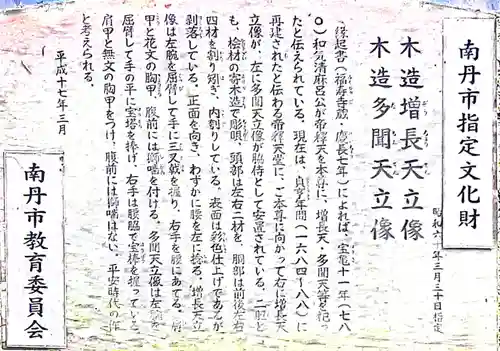 南丹市指定文化財
木造増長天立像
ぞうちょうてん
木造多聞天立像
昭和六十年三月三十日指定
縁起書(福寿寺蔵、慶長七年)によれば、宝亀十一年(七八
〇)和気清麻呂公が帝釈天を本尊に、増長天、多聞天等を祀っ
たと伝えられている。現在は、貞享年間(一六八四~八八)に
再建されたと伝わる帝釈天堂に、ご本尊に向かって右に増長天
立像が、左に多聞天立像が脇侍として安置されている。二躯と
も、桧材の寄木造で彫眼、頭部は左右二材を、胴部は前後左右
四材を剥り矧ぎ、内刳りしている。表面は彩色仕上げであるが
剥落している。正面を向き、わずかに腰を左に捻る。増長天立
像は左腕を屈臂して手に三叉戟を握り、右手を腰にあてる。肩
甲と花文の胸甲、腹前には獅噛を付ける。多聞天立像は左腕を
屈臂して手の平に宝塔を捧げ、右手は腰脇で宝棒を握っている。
肩甲と無文の胸甲をつけ、腹前には獅噛はない。平安時代の作
と考えられる。
平成十七年三月
南丹市教育委員会